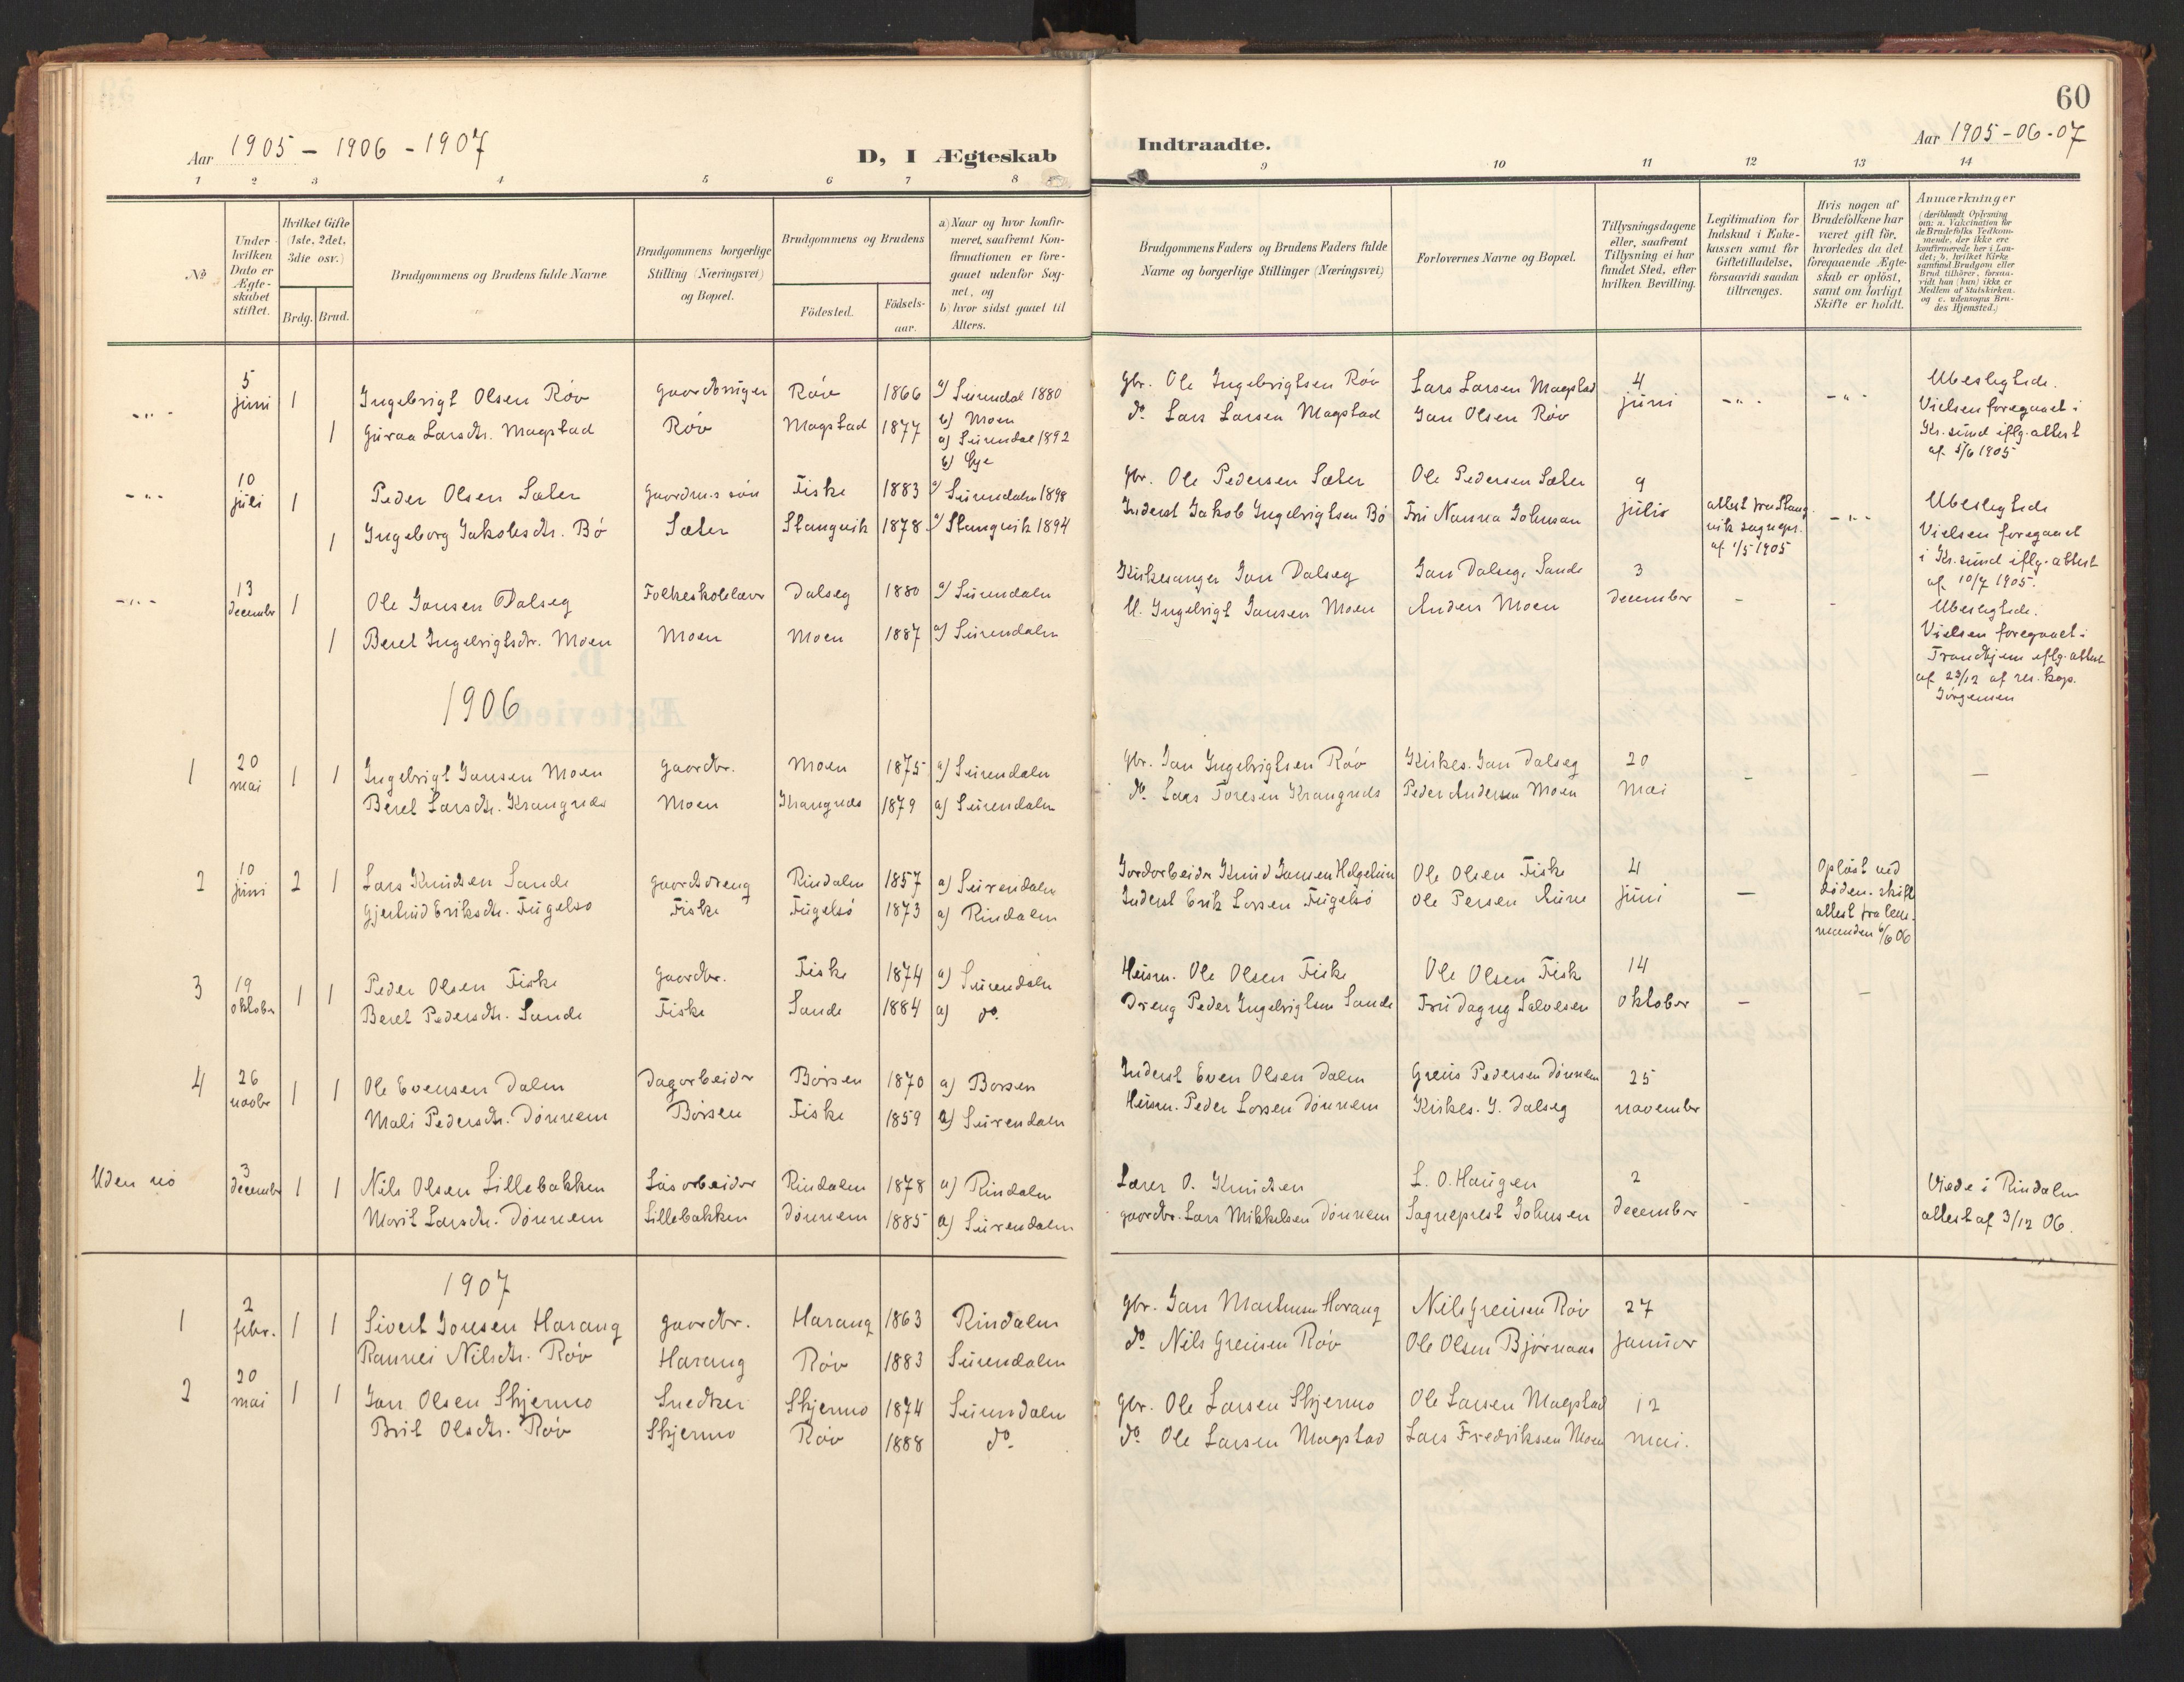 60
Aar 1905 - 1906 - 1907
D, I Ægteskab
Indtraadte.
Aar 1905-06-07
1 2 3 4 5 6 7 8
9 10 11 12 13 14
No
Under hvilken Dato er Ægteskabet stiftet.
Hvilket Gifte (1ste, 2det, 3die osv.)
Brdg. Brud.
Brudgommens og Brudens fulde Navne
Brudgommens borgerlige Stilling (Næringsvei) og Bopæl.
Brudgommens og Brudens
Fødested. Fødselsaar.
a) Naar og hvor konfirmeret, saafremt Konfirmationen er foregaaet udenfor Sognet, og
b) hvor sidst gaaet til Alters.
Brudgommens Faders og Brudens Faders fulde Navne og borgerlige Stillinger (Næringsvei)
Forlovernes Navne og Bopæl.
Tillysningsdagene eller, saafremt Tillysning ei har fundet Sted, efter hvilken Bevilling.
Legitimation for Indskud i Enkekassen samt for Giftetilladelse, forsaavidt saadan tiltrænges.
Hvis nogen af Brudefolkene har været gift før, hvorledes da det foregaaende Ægteskab er opløst, samt om lovligt Skifte er holdt.
Anmærkninger
(deriblandt Oplysning om: a. Vakcination for de Brudefolks Vedkommende, der ikke ere konfirmerede her i Landet; b. hvilket Kirkesamfund Brudgom eller Brud tilhører, forsaavidt han (hun) ikke er Medlem af Statskirken. og c. udensogns Brudes Hjemsted.)
-"- 5 juni 1 Ingebrigt Olsen Røv gaardbruger Røv 1866 a) Surendal 1880 gbr. Ole Ingebrigtsen Røv Lars Larsen Magstad 4 juni -"- -"- Ubeslegtede.
1 Guraa Larsdtr. Magstad Røv Magstad 1877 b) Moen do. Lars Larsen Magstad Jon Olsen Røv Vielsen foregaaet i
a) Surendal 1892 Kr.sund iflg. attest
b) Øye af 5/6 1905
-"- 10 juli 1 Peder Olsen Sæter gaardm.s søn Fiske 1883 a) Surendalen 1898 gbr. Ole Pedersen Sæter Ole Pedersen Sæter 9 Ubeslegtede
1 Ingeborg Jakobsdtr. Bø Sæter Stangvik 1878 a) Stangvik 1894 Inderst Jakob Ingebrigtsen Bø Fru Nanna Johnsen juli attest fra Stangvik sognepr. af 1/5 1905 -"- Vielsen foregaaet
i Kr.sund iflg. attest
af 10/7 1905.
-"- 13 decembr 1 Ole Jonsen Dalseg Folkeskolelærer Dalseg 1880 a) Surendalen Kirkesanger Jon Dalseg Jon Dalseg, Sande 3 december - - Ubeslegtede.
1 Beret Ingebrigtsdtr. Moen Moen Moen 1887 a) Surendalen Ingebrigt Jonsen Moen Anders Moen Vielsen foregaaet i
Trondhjem iflg. attest
af 23/12 af res. kap.
Jørgensen
1906
1 20 mai 1 1 Ingebrigt Jonsen Moen gaardbr. Moen 1875 a) Surendalen gbr. Jon Ingebrigtsen Røv Kirkes. Jon Dalseg 20 mai - - -
Beret Larsdtr. Krangnes Moen Krangnes 1879 a) Surendalen do. Lars Toresen Krangnes Peder Andersen Moen
2 10 juni 2 1 Lars Knudsen Sande gaardsdreng Rindalen 1857 a) Surendalen Jordarbeider Knud Jonsen Helgetun Ole Olsen Fiske 4 juni - Opløst ved
Gjertrud Eriksdtr. Fugelsø Fiske Fugelsø 1873 a) Rindalen Inderst Erik Larsen Fugelsø Ole Persen Aune døden. skifte
attest fra lensmanden 6/6 06
3 19 oktober 1 1 Peder Olsen Fiske gaardbr. Fiske 1874 a) Surendalen Husm. Ole Olsen Fiske Ole Olsen Fisk 14 oktober - -
Beret Pedersdtr. Sande Fiske Sande 1884 a) do. Dreng Peder Ingebrigtsen Sande Fru Dagny Salvesen
4 26 novbr 1 1 Ole Evensen Dalen Dagarbeider Børsen 1870 a) Børsen Inderst Even Olsen Dalen Greius Pedersen Dønnem 25 november
Mali Pedersdtr. Dønnem Børsen Fiske 1859 a) Surendalen Husm. Peder Larsen Dønnem Kirkes. J. Dalseg
Uden no 3 december 1 1 Nils Olsen Lillebakken Løsarbeider Rindalen 1878 a) Rindalen Lærer O. Knudsen L. O. Haugen 2 december - - Viede i Rindalen
Marit Larsdtr. Dønnem Lillebakken Dønnem 1885 a) Surendalen gaardbr. Lars Mikkelsen Dønnem Sogneprest Johnsen attest af 3/12 06.
1907
1 2 febr. 1 1 Sivert Jonsen Harang gaardbr. Harang 1863 Rindalen gbr. Jon Harang Nils Greiusen Røv 27 januar
Rannei Nilsdtr. Røv Harang Røv 1883 Surendalen do. Nils Greiusen Røv Ole Olsen Bjørnaas
2 20 mai 1 1 Jon Olsen Skjermo Snedker Skjermo 1874 Surendalen gbr. Ole Larsen Skjermo Ole Larsen Magstad 12 mai.
Brit Olsdtr. Røv Skjermo Røv 1888 do. do. Ole Larsen Magstad Lars Fredriksen Moen